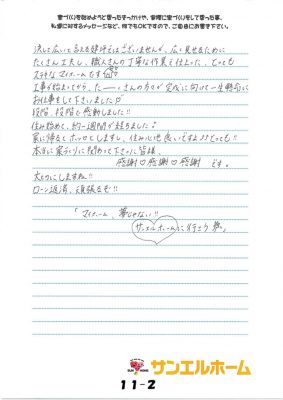 家づくりを始めようと思ったきっかけ、実際に家づくりをして思った事、
私達に対するメッセージなど、何でもOKですので、ご自由にお書き下さい。
決して広いと言える建坪ではございませんが、広く見せるために
たくさん工夫し、職人さんの丁寧な作業で仕上った、とっても
ステキなマイホームです
工事が始まってから、たーくさんの方々が完成に向けて一生懸命に
お仕事をして下さいました
段階、段階で感動しました!!
住み始めて、約一週間が経ちました。
家に帰るとホッとしますし、住み心地良いですよ♪♪とっても!!
本当に家づくりに関わって下さった皆様、
感謝♡感謝♡感謝 です。
大切にしますね!!
ローン返済、頑張るぞ!!
「マイホーム、夢じゃない!!
サンエルホームに行こう 」
SUN HOME
サンエルホーム
11-2